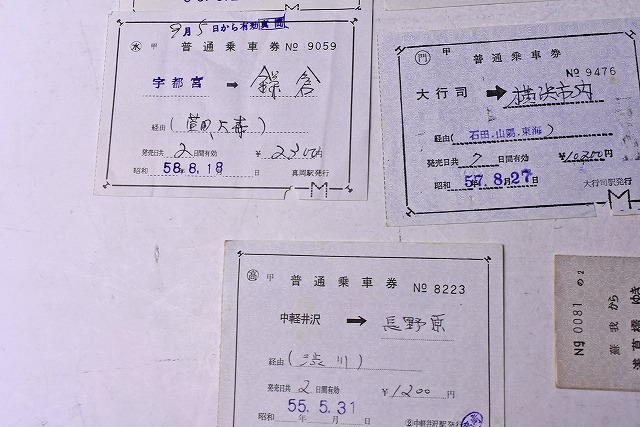 9月5日から有効
㊌ 甲 普通乗車券 № 9059
宇都宮 ➡ 鎌倉
経由( )
発売日共 2 日間有効 ¥ 2300円
昭和 58.8.18 日 真岡駅発行
㊀門 甲 普通乗車券
№ 9476
大行司 ➡ 横浜市内
経由(石田.山陽.東海)
発売日共 7 日間有効 ¥10200円
昭和 57.8月27日
大行司駅発行
高 甲 普通乗車券 № 8223
中軽井沢 ➡ 長野原
経由(渋川)
発売日共 2 日間有効 ¥1200円
55.5.31
昭和 年 月 日 ②中軽井沢駅発行
№ 0081 の2
蘇我から
ゆき